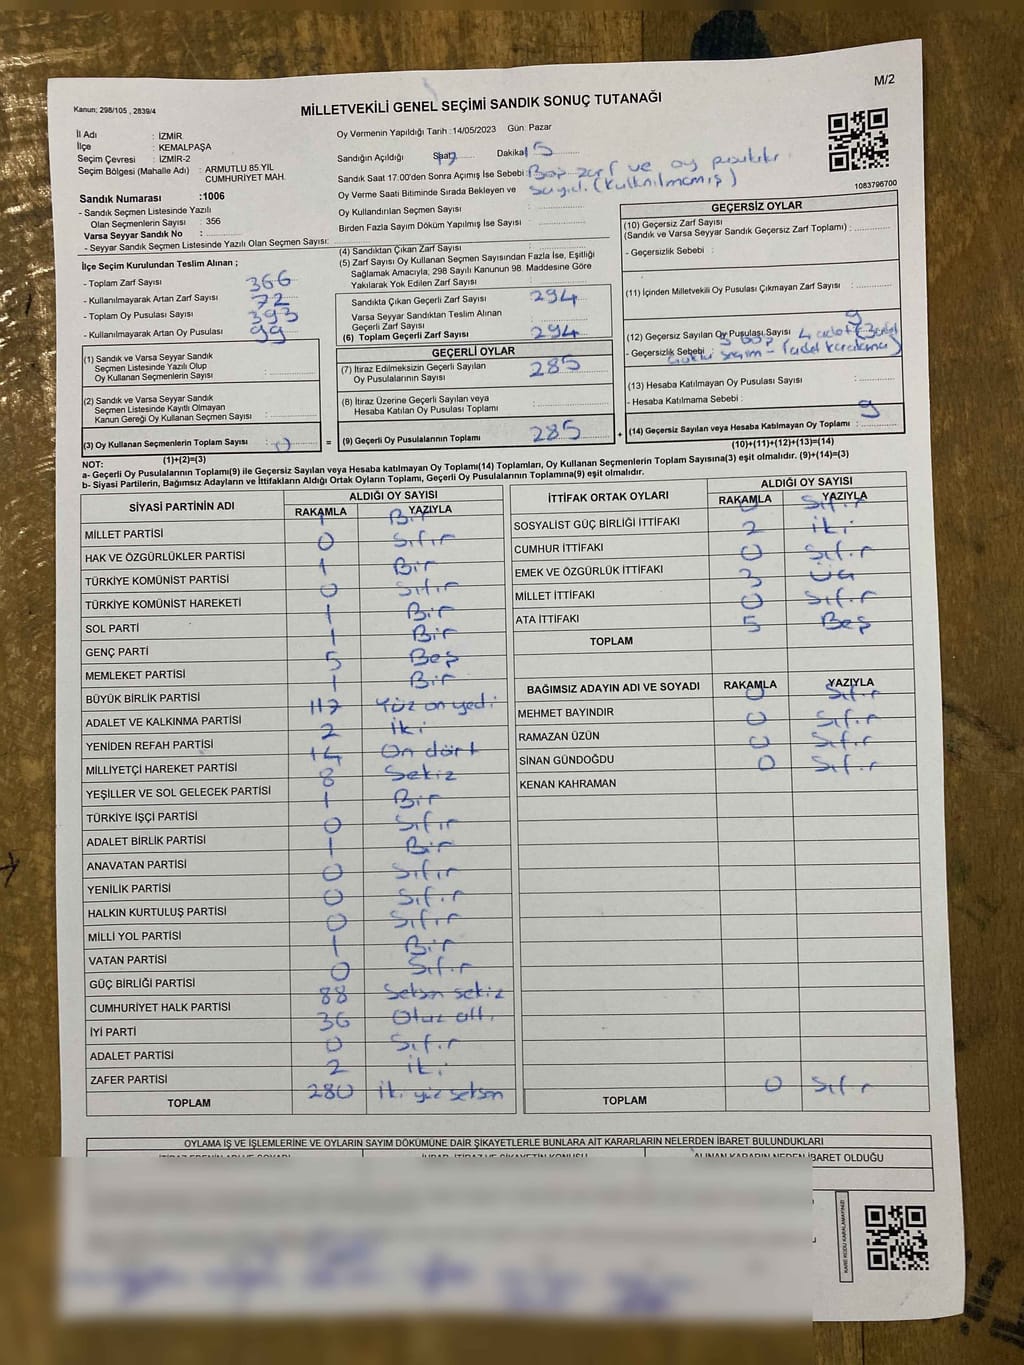 M/2
Kanun; 298/105 , 2839/4
MİLLETVEKİLİ GENEL SEÇİMİ SANDIK SONUÇ TUTANAĞI
İl Adı : İZMİR
İlçe : KEMALPAŞA
Seçim Çevresi : İZMİR-2
Seçim Bölgesi (Mahalle Adı) : ARMUTLU 85.YIL
CUMHURİYET MAH.
Sandık Numarası :1006
- Sandık Seçmen Listesinde Yazılı
Olan Seçmenlerin Sayısı : 356
Varsa Seyyar Sandık No :
- Seyyar Sandık Seçmen Listesinde Yazılı Olan Seçmen Sayısı:
Oy Vermenin Yapıldığı Tarih :14/05/2023 Gün: Pazar
Sandığın Açıldığı Saat Dakika 15
Sandık Saat 17.00'den Sonra Açımış İse Sebebi : Boş zarf ve oy pusulası
Oy Verme Saati Bitiminde Sırada Bekleyen ve sayıldı. (Kullanılmamış)
Oy Kullandırılan Seçmen Sayısı :
Birden Fazla Sayım Döküm Yapılmış İse Sayısı :
1083796700
İlçe Seçim Kurulundan Teslim Alınan ;
- Toplam Zarf Sayısı 366
- Kullanılmayarak Artan Zarf Sayısı 72
- Toplam Oy Pusulası Sayısı 393
- Kullanılmayarak Artan Oy Pusulası 99
(1) Sandık ve Varsa Seyyar Sandık
Seçmen Listesinde Yazılı Olup
Oy Kullanan Seçmenlerin Sayısı :
(2) Sandık ve Varsa Seyyar Sandık
Seçmen Listesinde Kayıtlı Olmayan
Kanun Gereği Oy Kullanan Seçmen Sayısı :
(3) Oy Kullanan Seçmenlerin Toplam Sayısı :
(1)+(2)=(3)
(4) Sandıktan Çıkan Zarf Sayısı :
(5) Zarf Sayısı Oy Kullanan Seçmen Sayısından Fazla İse, Eşitliği
Sağlamak Amacıyla; 298 Sayılı Kanunun 98. Maddesine Göre
Yakılarak Yok Edilen Zarf Sayısı :
Sandıkta Çıkan Geçerli Zarf Sayısı 294
Varsa Seyyar Sandıktan Teslim Alınan
Geçerli Zarf Sayısı :
(6) Toplam Geçerli Zarf Sayısı : 294
GEÇERLİ OYLAR
(7) İtiraz Edilmeksizin Geçerli Sayılan
Oy Pusulalarının Sayısı : 285
(8) İtiraz Üzerine Geçerli Sayılan veya
Hesaba Katılan Oy Pusulası Toplamı :
= (9) Geçerli Oy Pusulalarının Toplamı : 285 +
GEÇERSİZ OYLAR
(10) Geçersiz Zarf Sayısı
(Sandık ve Varsa Seyyar Sandık Geçersiz Zarf Toplamı) :
- Geçersizlik Sebebi :
(11) İçinden Milletvekili Oy Pusulası Çıkmayan Zarf Sayısı :
(12) Geçersiz Sayılan Oy Pusulası Sayısı : 9
- Geçersizlik Sebebi :
(13) Hesaba Katılmayan Oy Pusulası Sayısı :
- Hesaba Katılmama Sebebi :
(14) Geçersiz Sayılan veya Hesaba Katılmayan Oy Toplamı : 9
(10)+(11)+(12)+(13)=(14)
NOT:
a- Geçerli Oy Pusulalarının Toplamı(9) ile Geçersiz Sayılan veya Hesaba katılmayan Oy Toplamı(14) Toplamları, Oy Kullanan Seçmenlerin Toplam Sayısına(3) eşit olmalıdır. (9)+(14)=(3)
b- Siyasi Partilerin, Bağımsız Adayların ve İttifakların Aldığı Ortak Oyların Toplamı, Geçerli Oy Pusulalarının Toplamına(9) eşit olmalıdır.
SİYASİ PARTİNİN ADI ALDIĞI OY SAYISI
RAKAMLA YAZIYLA
MİLLET PARTİSİ 1 Bir
HAK VE ÖZGÜRLÜKLER PARTİSİ 0 Sıfır
TÜRKİYE KOMÜNİST PARTİSİ 1 Bir
TÜRKİYE KOMÜNİST HAREKETİ 0 Sıfır
SOL PARTİ 1 Bir
GENÇ PARTİ 1 Bir
MEMLEKET PARTİSİ 5 Beş
BÜYÜK BİRLİK PARTİSİ 1 Bir
ADALET VE KALKINMA PARTİSİ 117 Yüz on yedi
YENİDEN REFAH PARTİSİ 2 İki
MİLLİYETÇİ HAREKET PARTİSİ 14 On dört
YEŞİLLER VE SOL GELECEK PARTİSİ 8 Sekiz
TÜRKİYE İŞÇİ PARTİSİ 1 Bir
ADALET BİRLİK PARTİSİ 0 Sıfır
ANAVATAN PARTİSİ 1 Bir
YENİLİK PARTİSİ 0 Sıfır
HALKIN KURTULUŞ PARTİSİ 0 Sıfır
MİLLİ YOL PARTİSİ 0 Sıfır
VATAN PARTİSİ 1 Bir
GÜÇ BİRLİĞİ PARTİSİ 0 Sıfır
CUMHURİYET HALK PARTİSİ 88 Seksen sekiz
İYİ PARTİ 36 Otuz altı
ADALET PARTİSİ 0 Sıfır
ZAFER PARTİSİ 2 İki
TOPLAM 280 İki yüz seksen
İTTİFAK ORTAK OYLARI ALDIĞI OY SAYISI
RAKAMLA YAZIYLA
SOSYALİST GÜÇ BİRLİĞİ İTTİFAKI 0 Sıfır
CUMHUR İTTİFAKI 2 İki
EMEK VE ÖZGÜRLÜK İTTİFAKI 0 Sıfır
MİLLET İTTİFAKI 3 Üç
ATA İTTİFAKI 0 Sıfır
TOPLAM 5 Beş
BAĞIMSIZ ADAYIN ADI VE SOYADI RAKAMLA YAZIYLA
MEHMET BAYINDIR 0 Sıfır
RAMAZAN ÜZÜN 0 Sıfır
SİNAN GÜNDOĞDU 0 Sıfır
KENAN KAHRAMAN 0 Sıfır
TOPLAM 0 Sıfır
OYLAMA İŞ VE İŞLEMLERİNE VE OYLARIN SAYIM DÖKÜMÜNE DAİR ŞİKAYETLERLE BUNLARA AİT KARARLARIN NELERDEN İBARET BULUNDUKLARI
ALINAN KARARIN NEDEN İBARET OLDUĞU
KARE KODU KARALAMAYINIZ!